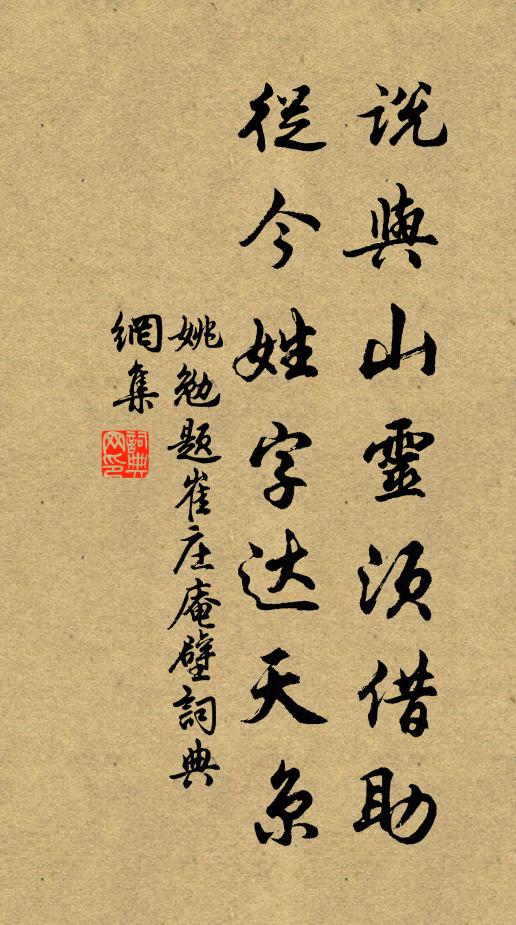 説與山靈須借助
從今姓字达天京
姚勉题崔庄庵壁詞典
網集
詞典網印